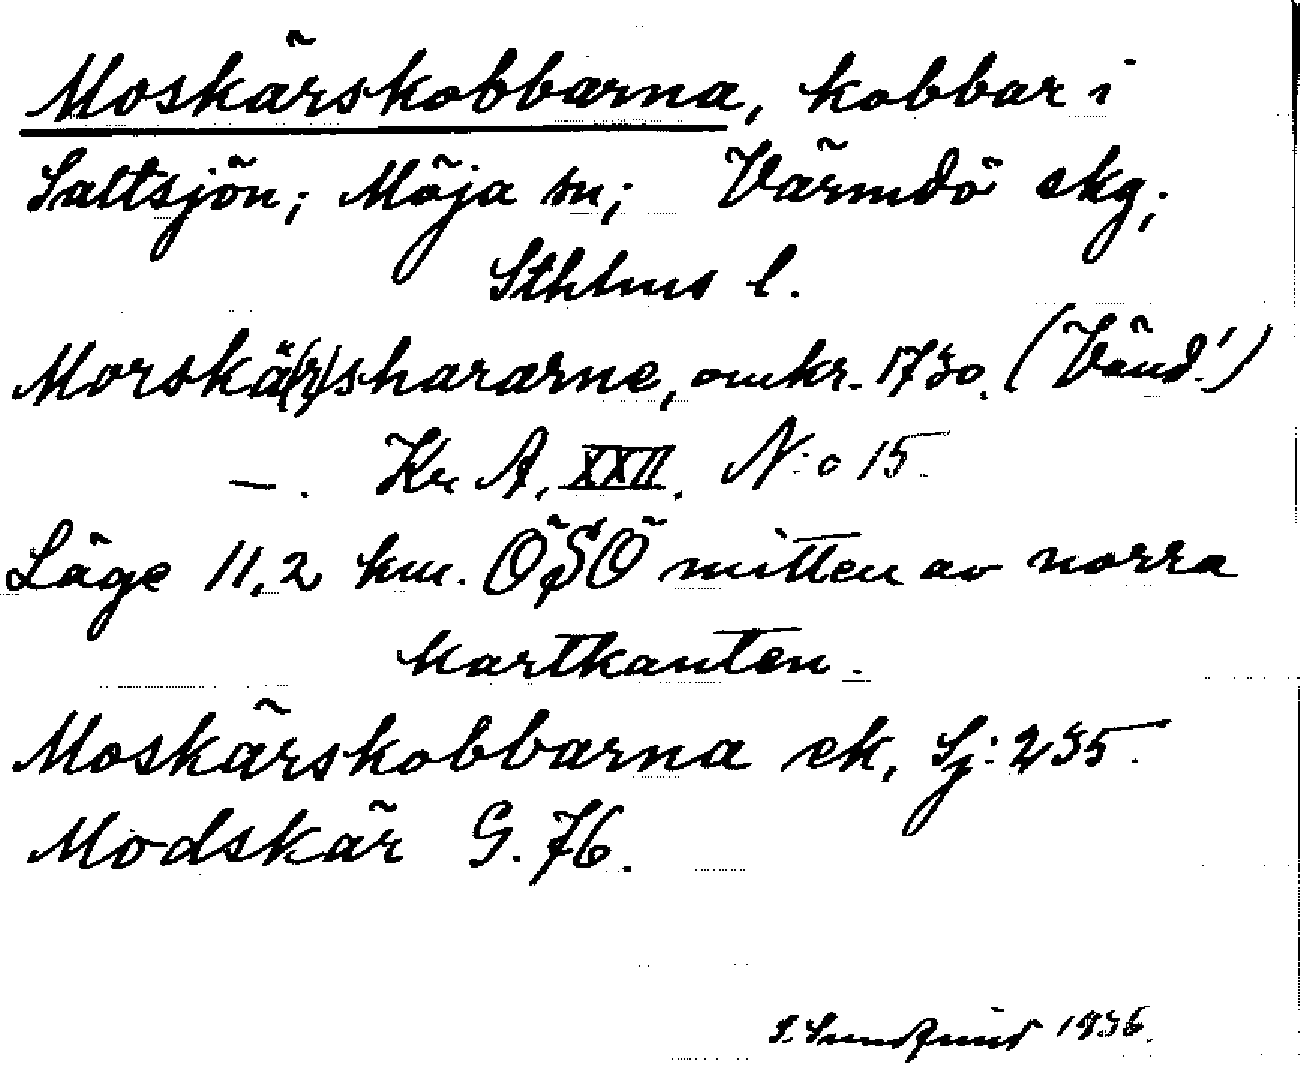 Moskärskobbarna, kobbar i
Saltsjön; Möja sn; Värmdö skg;
Sthlms l.
Morskä(r)shararne, omkr. 1730. (Vänd!)
—. Kr A, XXII. N:o 15.
Läge 11,2 km. ÖSÖ mitten av norra
kartkanten.
Moskärskobbarna ek, Sj: 235.
Modskär G. 76.
1936.